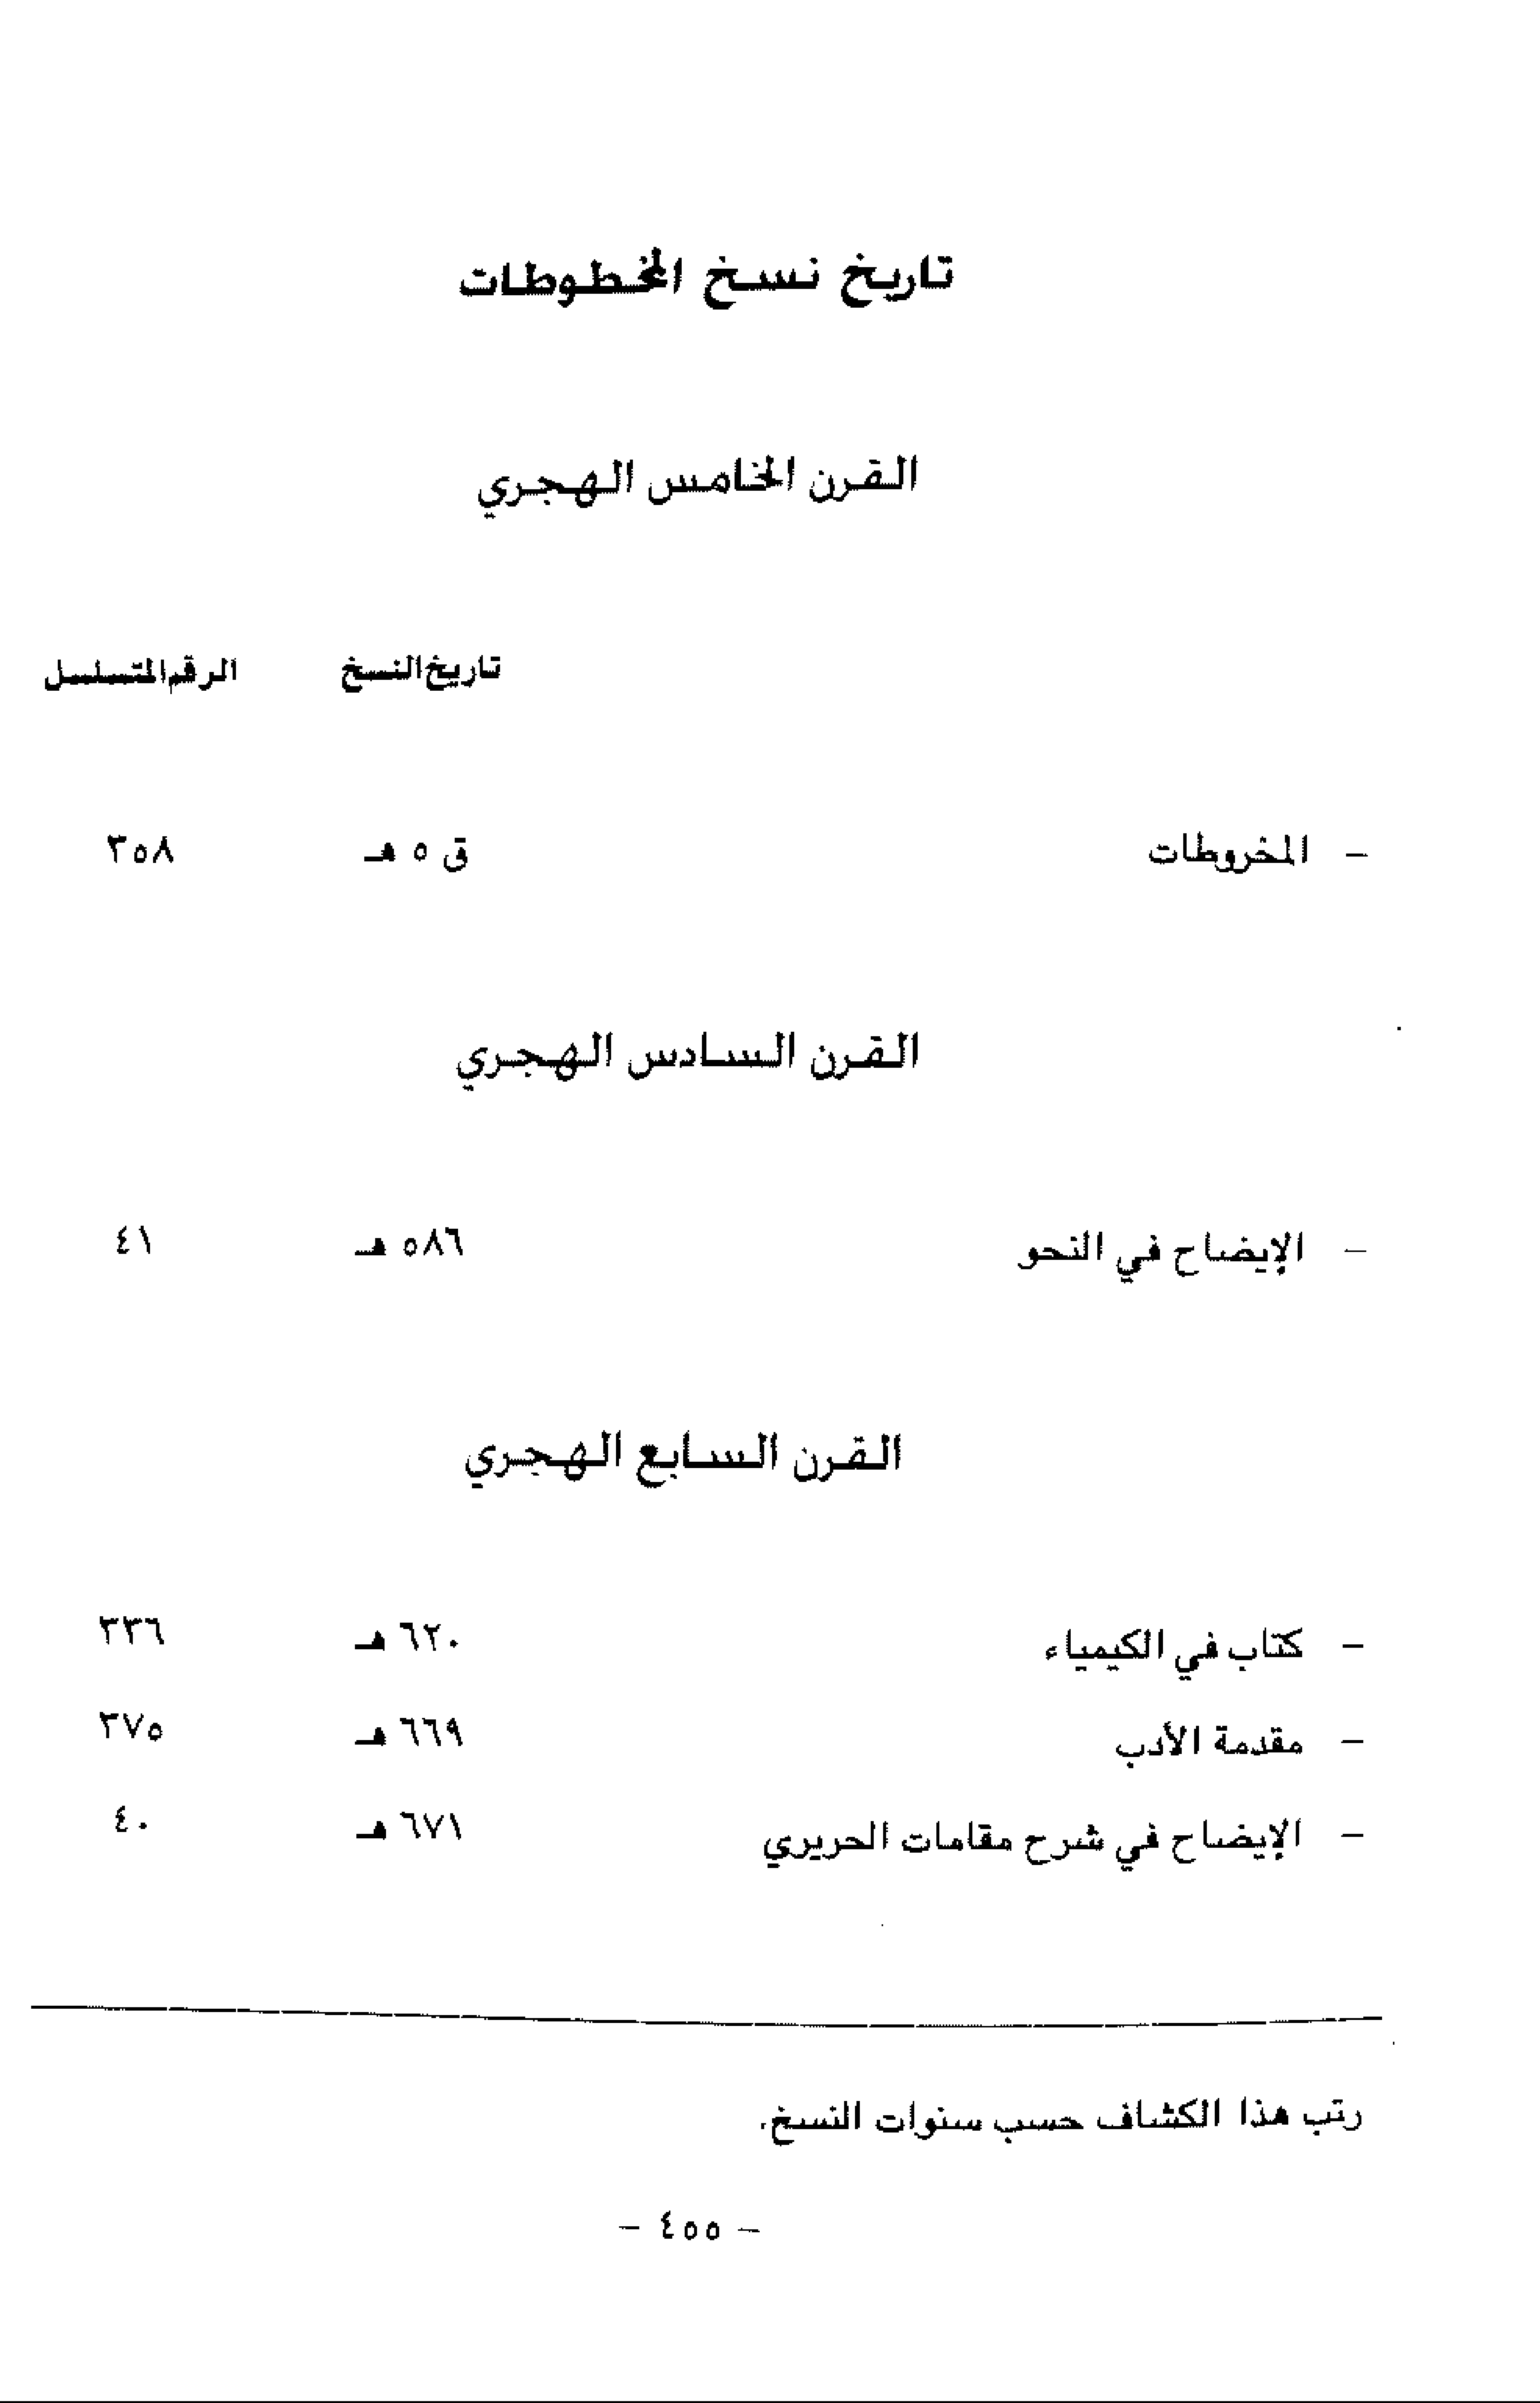 تاريخ نسخ المخطوطات
القرن الخامس الهجري
تاريخ النسخ الرقم المتسلسل
- المخروطات ق ٥ هـ ٣٥٨
القرن السادس الهجري
- الإيضاح في النحو ٥٨٦ هـ ٤١
القرن السابع الهجري
- كتاب في الكيمياء ٦٢٠ هـ ٣٣٦
- مقدمة الأدب ٦٦٩ هـ ٣٧٥
- الإيضاح في شرح مقامات الحريري ٦٧١ هـ ٤٠
رتب هذا الكشاف حسب سنوات النسخ.
- ٤٥٥ -